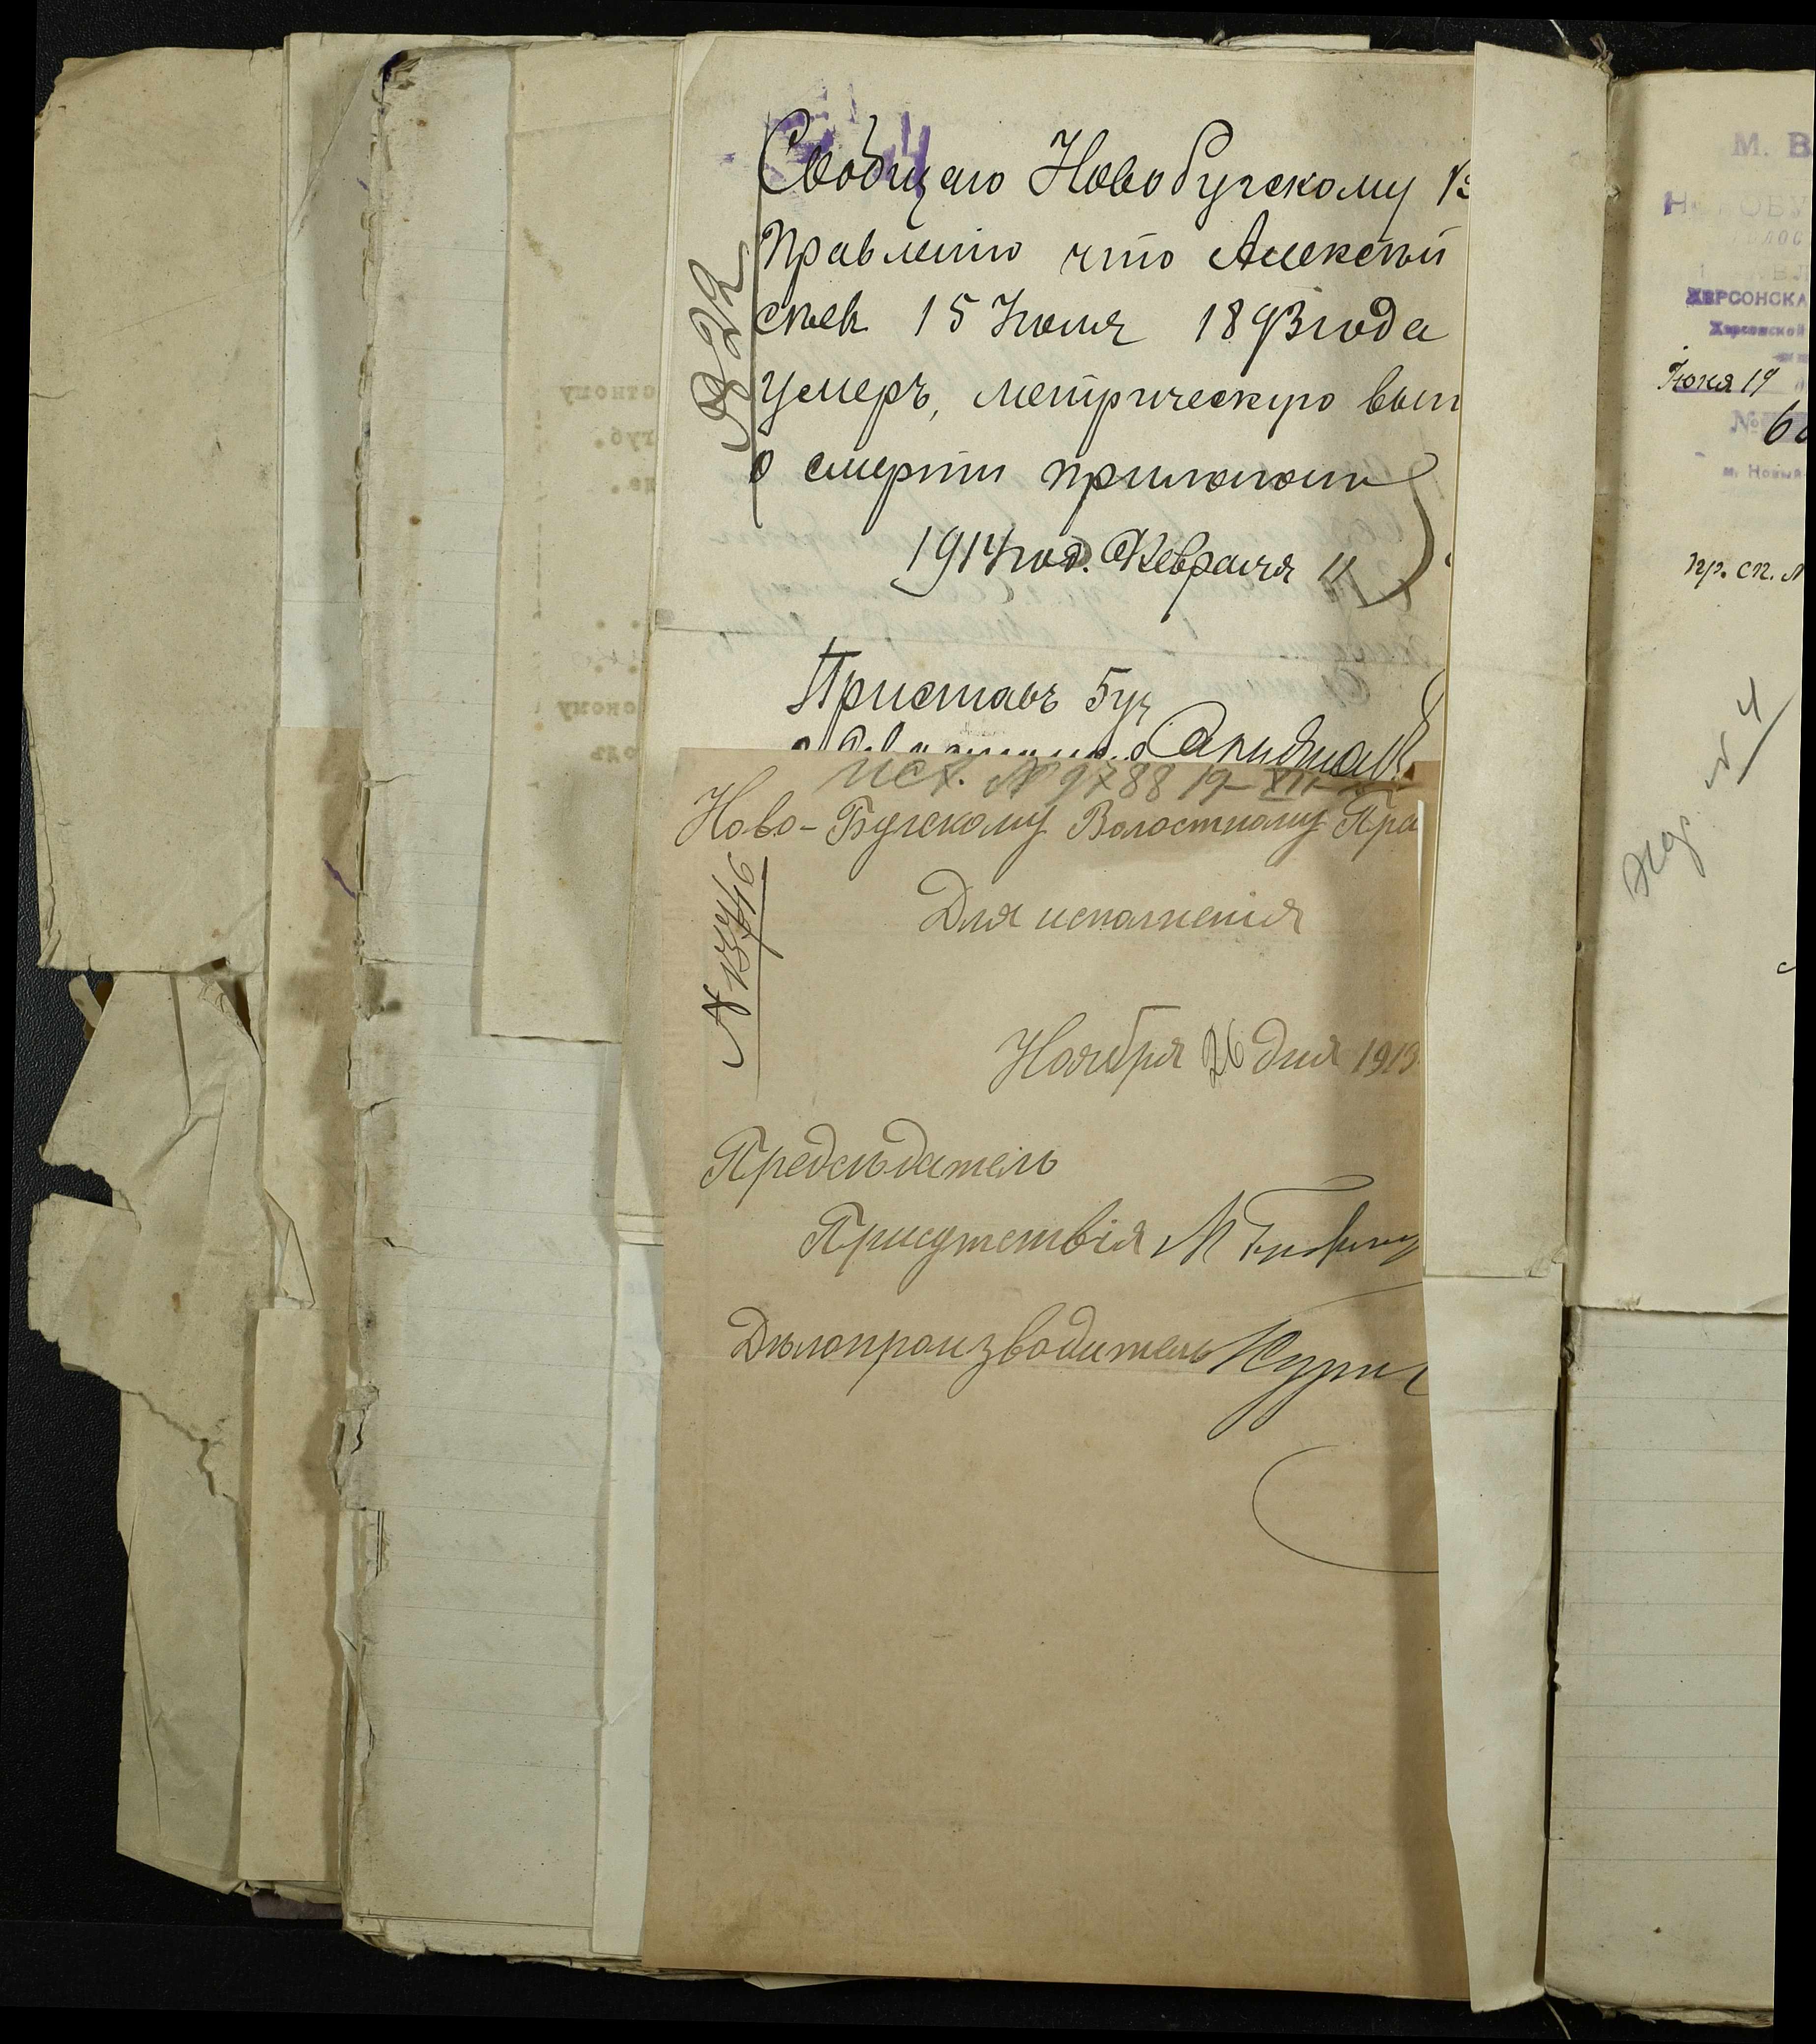 Сообщаю Новобугскому В
Правленію что Алексѣй
сѣев 15 Іюля 1893 года
умеръ, метрическую вып
о смерти прилагаю
1914 год. Февраля 11
Приставъ
Исх. № 9788 19-XII-
Ново-Бугскому Волостному Пра
№ 13746
Для исполненія
Ноября 26 дня 1913
Предсѣдатель
Присутствія
Дѣлопроизводитель
отному
губ.
да.
скому
одъ
М. В
НОВОБУ
ВОЛОС
ХЕРСОНСКА
Херсонской
Іюня 19
№ 6
м. Новый
пр. сп. №